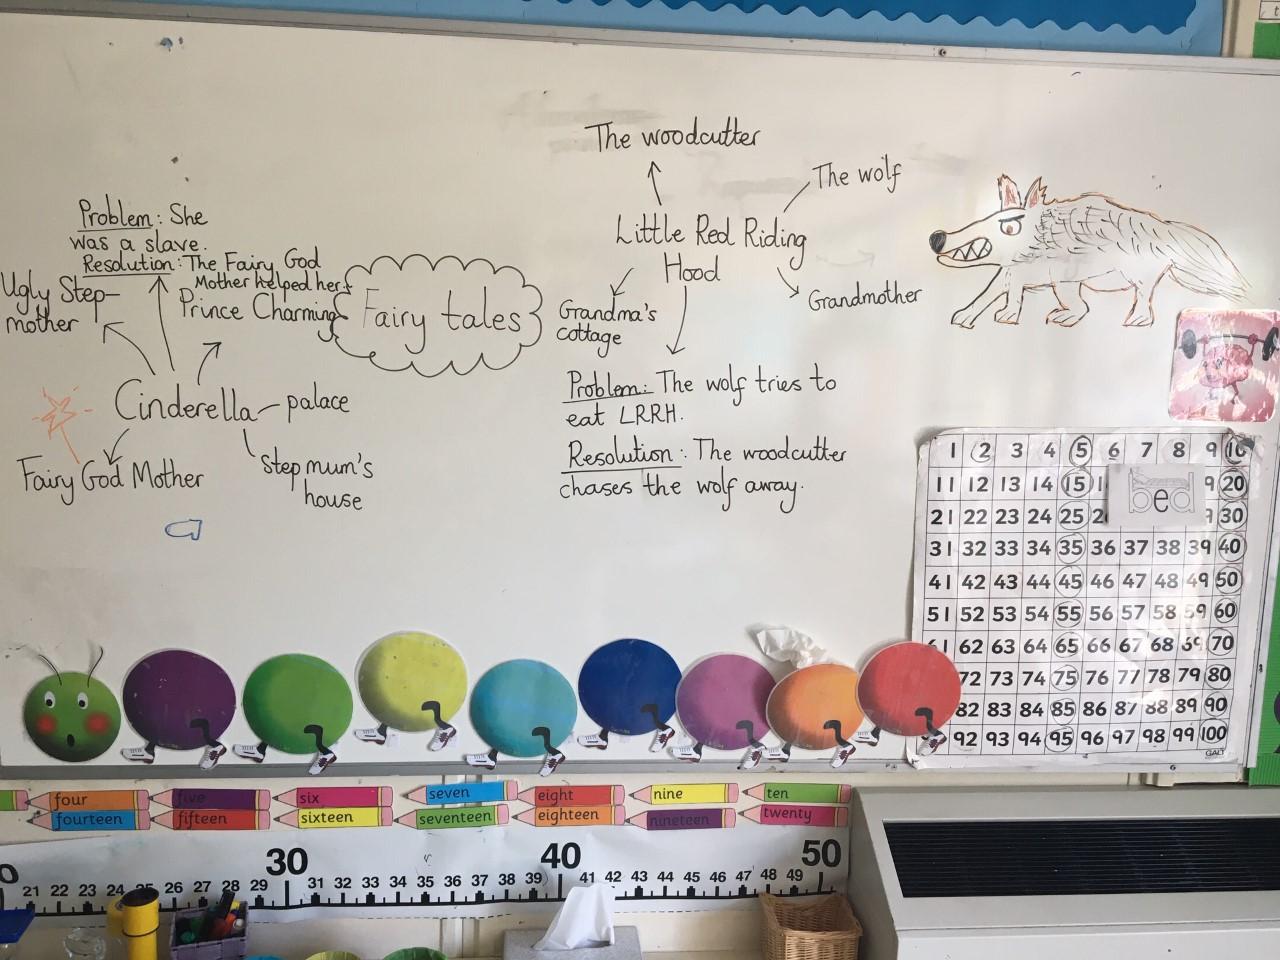 The woodcutter
The wolf
Little Red Riding
Hood
Grandmother
Grandma's
cottage
Problem: The wolf tries to
eat LRRH.
Resolution: The woodcutter
chases the wolf away.
Fairy tales
Problem: She
was a slave.
Resolution: The Fairy God
Mother helped her.
Ugly Step-
mother
Prince Charming
Cinderella
palace
Fairy God Mother
step mum's
house
1 2 3 4 5 6 7 8 9 10
11 12 13 14 15 1 9 20
bed
21 22 23 24 25 2 9 30
31 32 33 34 35 36 37 38 39 40
41 42 43 44 45 46 47 48 49 50
51 52 53 54 55 56 57 58 59 60
61 62 63 64 65 66 67 68 69 70
72 73 74 75 76 77 78 79 80
82 83 84 85 86 87 88 89 90
92 93 94 95 96 97 98 99 100
GALT
four five six seven eight nine ten
fourteen fifteen sixteen seventeen eighteen nineteen twenty
30 40 50
0 21 22 23 24 25 26 27 28 29 31 32 33 34 35 36 37 38 39 41 42 43 44 45 46 47 48 49